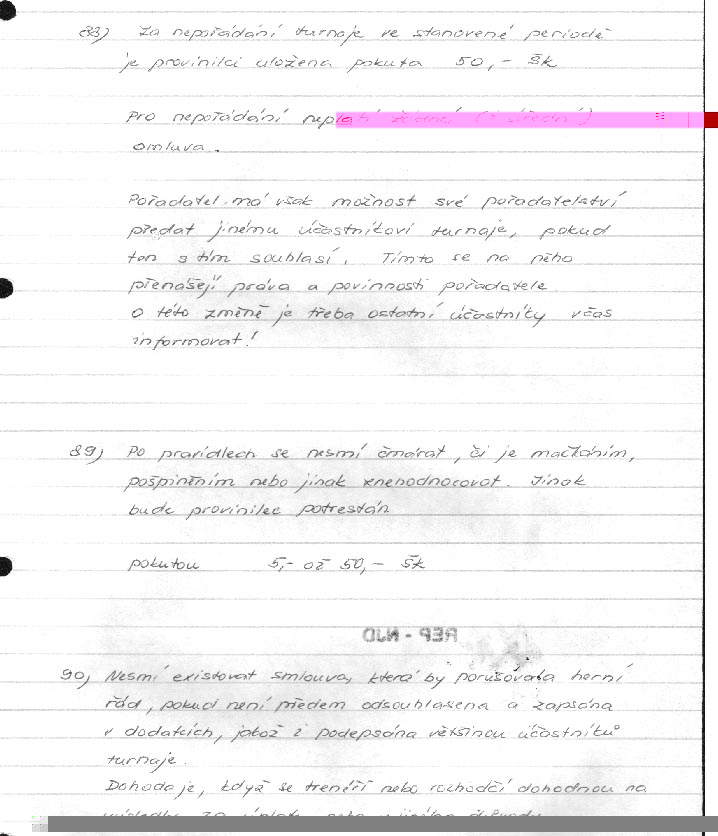 88) Za nepořádání turnaje ve stanovené periodě
je provinilci uložena pokuta 50,- Šk
Pro nepořádání neplatí žádná (i úřední)
omluva.
Pořadatel má však možnost své pořadatelství
předat jinému účastníkovi turnaje, pokud
ten s tím souhlasí. Tímto se na něho
přenášejí práva a povinnosti pořadatele.
O této změně je třeba ostatní účastníky včas
informovat!
89) Po pravidlech se nesmí čmárat, či je mačkáním,
pošpiněním nebo jinak znehodnocovat. Jinak
bude provinilec potrestán
pokutou 5,- až 50,- Šk
REP - NUO
90) Nesmí existovat smlouva, která by porušovala herní
řád, pokud není předem odsouhlasena a zapsána
v dodatcích, jakož i podepsána většinou účastníků
turnaje.
Dohoda je, když se trenéři nebo rozhodčí dohodnou na